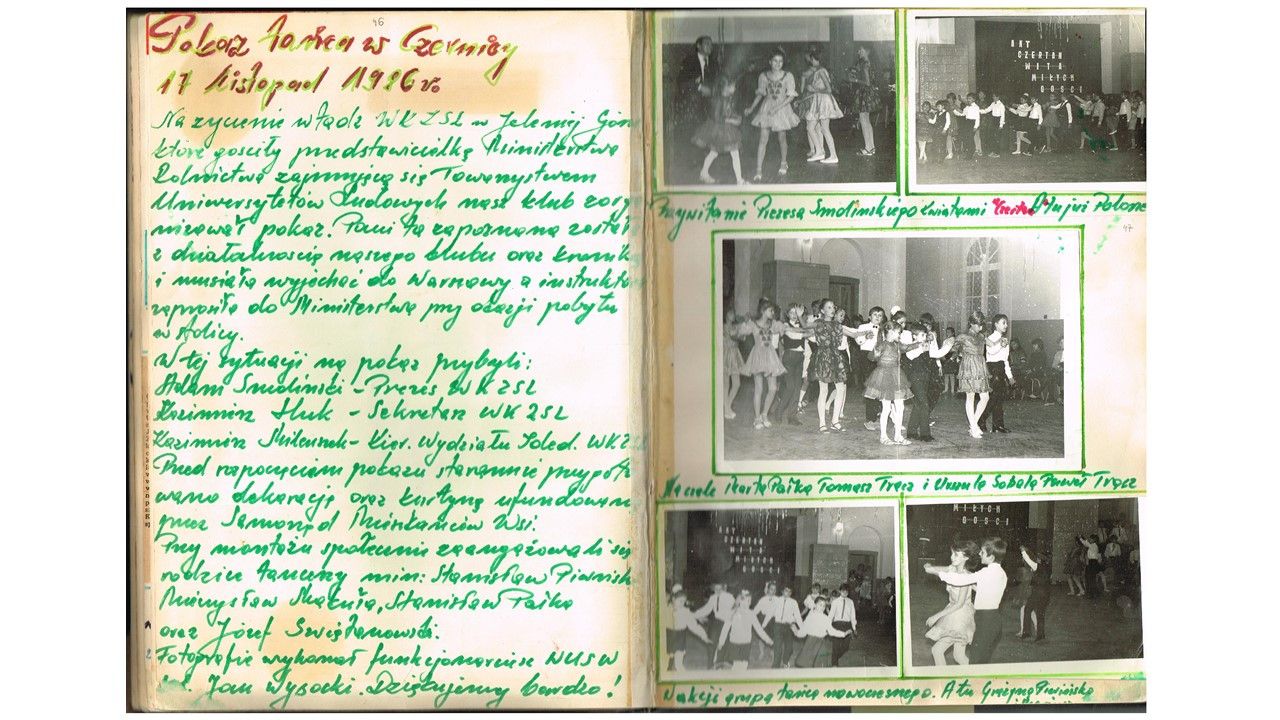 46
Pokaz tańca w Czernicy
17 listopad 1986 r.
Na życzenie władz WK ZSL w Jeleniej Górze
które gościły przedstawicielkę Ministerstwa
Rolnictwa zajmującą się Towarzystwem
Uniwersytetów Ludowych nasz klub zorga
nizował pokaz. Pani ta zapoznana została
z działalnością naszego klubu oraz kroniką
i musiała wyjechać do Warszawy a instruktora
zaprosiła do Ministerstwa przy okazji pobytu
w stolicy.
W tej sytuacji na pokaz przybyli:
Adam Smoliński - Prezes WK ZSL
Kazimierz Huk - Sekretarz WK ZSL
Kazimierz - Kier. Wydziału WK ZSL
Przed rozpoczęciem pokazu starannie przygoto
wano dekorację oraz kurtynę ufundowaną
przez Samorząd Mieszkańców Wsi.
Przy montażu społecznie zaangażowali się
rodzice tancerzy min: Stanisław
Mieczysław Stanisław Pałka
oraz Józef
Fotografie wykonał funkcjonariusz WUSW
Jan Wysocki. Dziękujemy bardzo!
ANT
CZERTAN
WITA
MIŁYCH
GOŚCI
Przywitanie Prezesa Smolińskiego kwiatami
47
Na czele Marta Pałka Tomasz Tracz i Urszula Sobala Paweł Tracz
ANT
CZERTAN
WITA
MIŁYCH
GOŚCI
MIŁYCH
GOŚCI
W akcji grupa tańca nowoczesnego. A tu Grażyna Piwińska